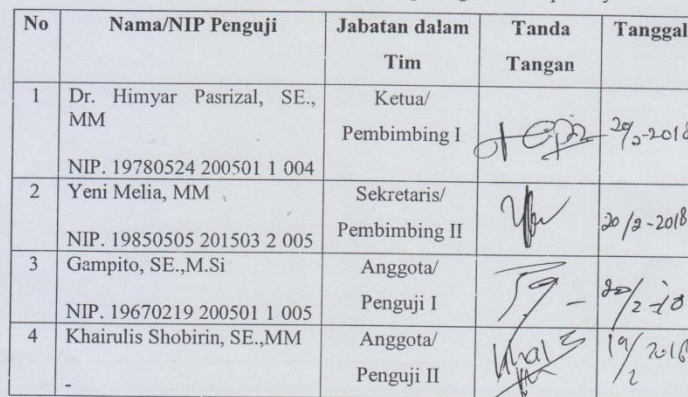 No Nama/NIP Penguji Jabatan dalam Tim Tanda Tangan Tanggal
1 Dr. Himyar Pasrizal, SE., MM
NIP. 19780524 200501 1 004
Ketua/
Pembimbing I
20/2-2018
2 Yeni Melia, MM
NIP. 19850505 201503 2 005
Sekretaris/
Pembimbing II
20/2-2018
3 Gampito, SE.,M.Si
NIP. 19670219 200501 1 005
Anggota/
Penguji I
20/2-18
4 Khairulis Shobirin, SE.,MM
-
Anggota/
Penguji II
19/2 2018